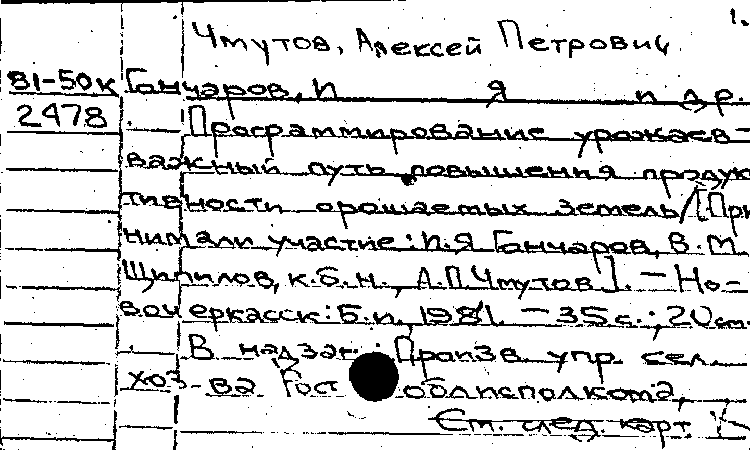 1.
Чмутов, Алексей Петрович
81-50к Ганчаров, П Я и др.
2478 Программирование урожаев-
важный путь повышения продук
тивности орошаемых земель/[При
нимали участие: П.Я Ганчаров, В.М.
Щипилов, к.б.н., А.П.Чмутов]. — Но-
вочеркасск: Б.и, 1981. — 35 с.; 20 см.
В надзаг.: Произв упр сел.
хоз-ва Рост облисполкома,
См. след. карт